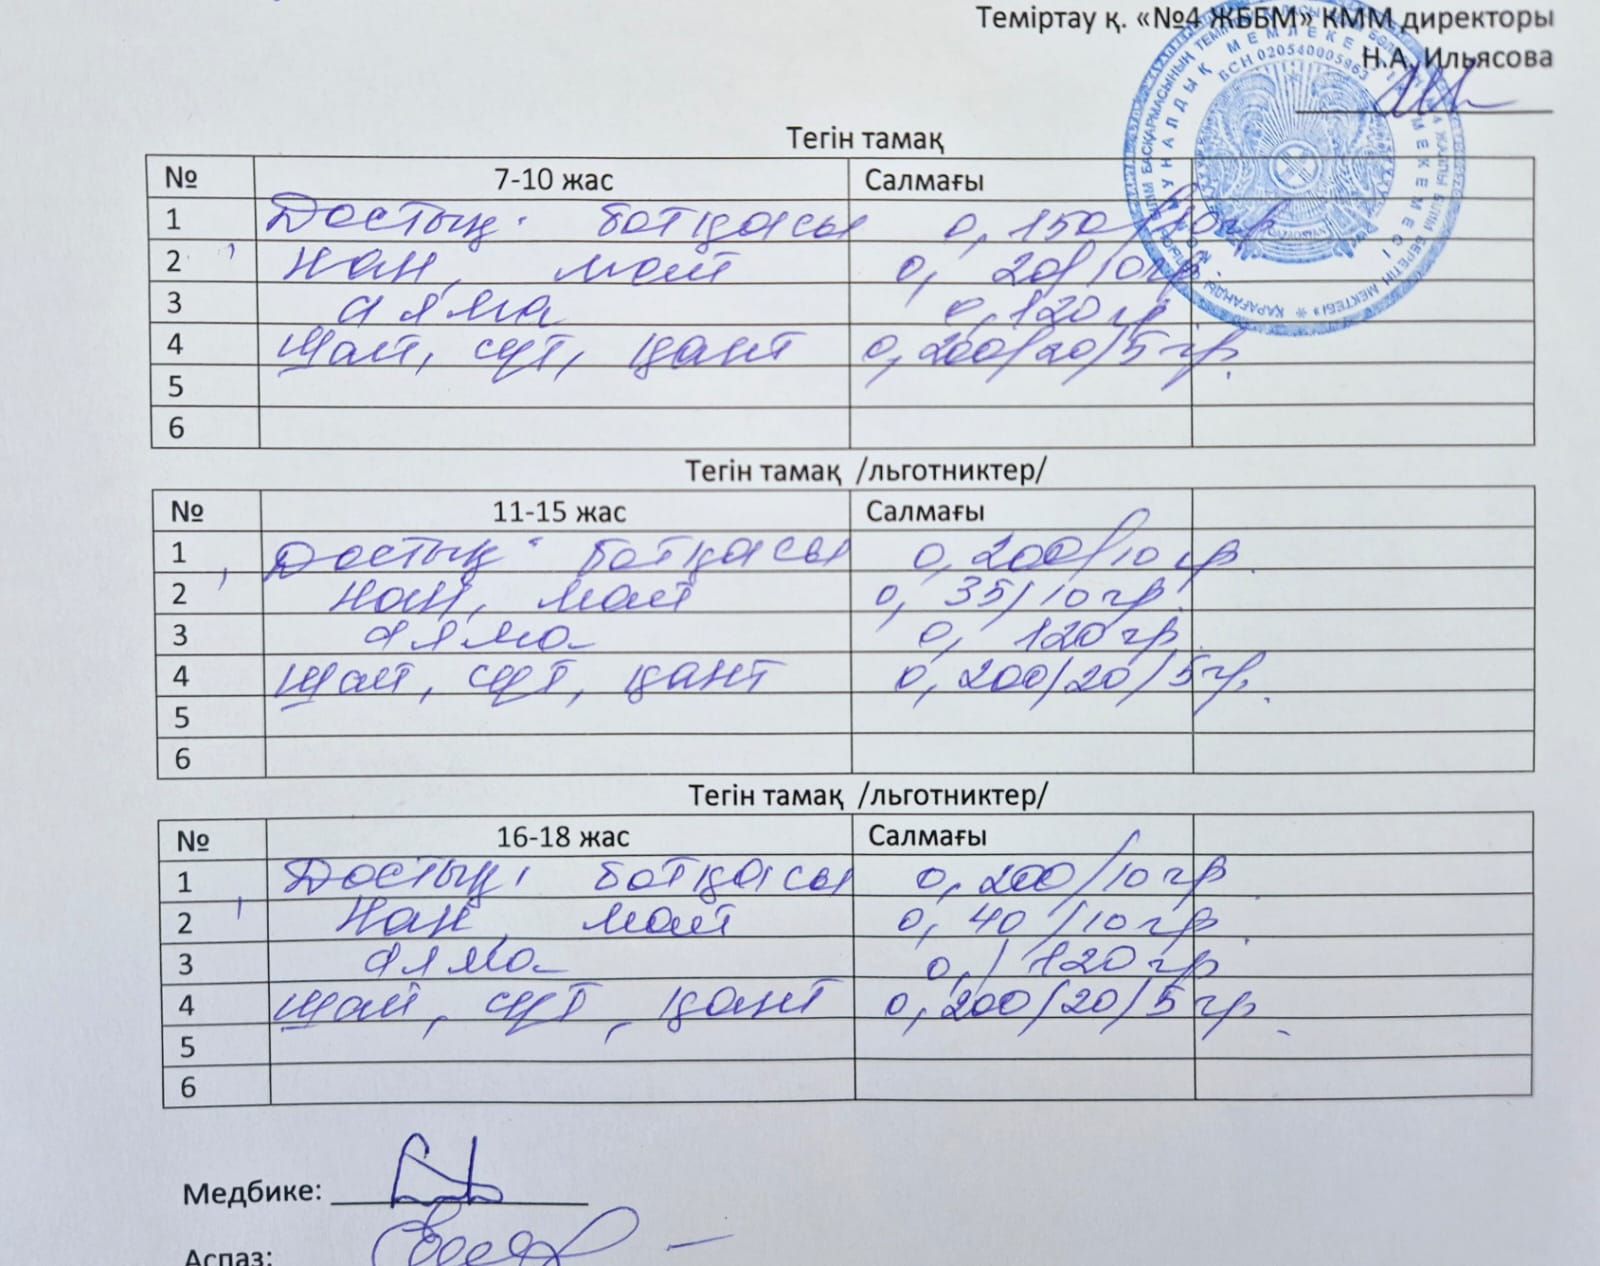 Теміртау қ. «№4 ЖББМ» КММ директоры
Н.А. Ильясова
БСН 020540005863
Тегін тамақ
№ 7-10 жас Салмағы
1 Достық ботқасы 0,150/10гр
2 Нан, май 0, 20/10гр
3 алма 0,120 гр
4 Шай, сүт, қант 0,200/20/5 гр.
5
6
Тегін тамақ /льготниктер/
№ 11-15 жас Салмағы
1 Достық ботқасы 0,200/10 гр.
2 Нан, май 0, 35/10 гр.
3 алма 0, 120 гр
4 Шай, сүт, қант 0, 200/20/5 гр.
5
6
Тегін тамақ /льготниктер/
№ 16-18 жас Салмағы
1 Достық ботқасы 0,200/10 гр
2 Нан, май 0, 40/10 гр
3 алма 0, 120 гр
4 Шай, сүт, қант 0,200/20/5 гр.
5
6
Медбике:
Аспаз: